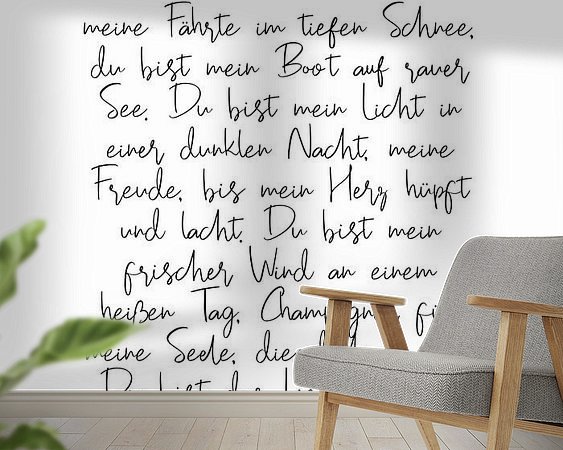 meine Fährte im tiefen Schnee,
du bist mein Boot auf rauer
See. Du bist mein Licht in
einer dunklen Nacht, meine
Freude, bis mein Herz hüpft
und lacht. Du bist mein
frischer Wind an einem
heißen Tag, Champagner
meine Seele, die
Du bist